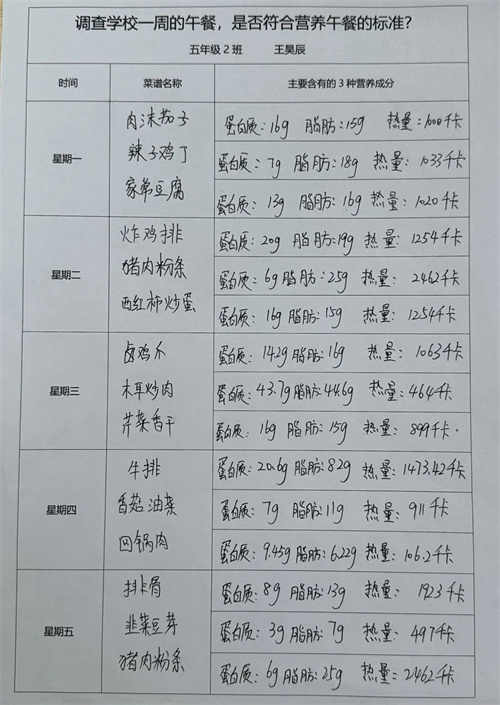 调查学校一周的午餐，是否符合营养午餐的标准？
五年级２班 王昊辰
时间 菜谱名称 主要含有的3种营养成分
星期一
肉沫茄子 蛋白质：16g 脂肪：15g 热量：1000千卡
辣子鸡丁 蛋白质：7g 脂肪：18g 热量：1033千卡
家常豆腐 蛋白质：13g 脂肪：16g 热量：1020千卡
星期二
炸鸡排 蛋白质：20g 脂肪：19g 热量：1254千卡
猪肉粉条 蛋白质：6g 脂肪：25g 热量：2462千卡
西红柿炒蛋 蛋白质：16g 脂肪：15g 热量：1254千卡
星期三
卤鸡 蛋白质：142g 脂肪：16g 热量：1063千卡
木耳炒肉 蛋白质：43.7g 脂肪：44.6g 热量：464千卡
芹菜香干 蛋白质：16g 脂肪：15g 热量：899千卡.
星期四
牛排 蛋白质：20.6g 脂肪：82g 热量：1473.42千卡
香菇油菜 蛋白质：7g 脂肪：11g 热量：911千卡
回锅肉 蛋白质：9.45g 脂肪：6.22g 热量：106.2千卡
星期五
排骨 蛋白质：8g 脂肪：13g 热量：1923千卡
韭菜豆芽 蛋白质：3g 脂肪：7g 热量：497千卡
猪肉粉条 蛋白质：6g 脂肪：25g 热量：2462千卡